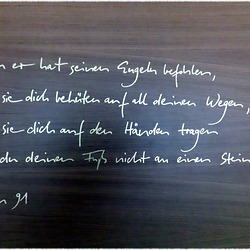 er hat seinen Engeln befohlen,
sie dich behüten auf all deinen Wegen,
sie dich auf den Händen tragen
du deinen Fuß nicht an einen Stein
91